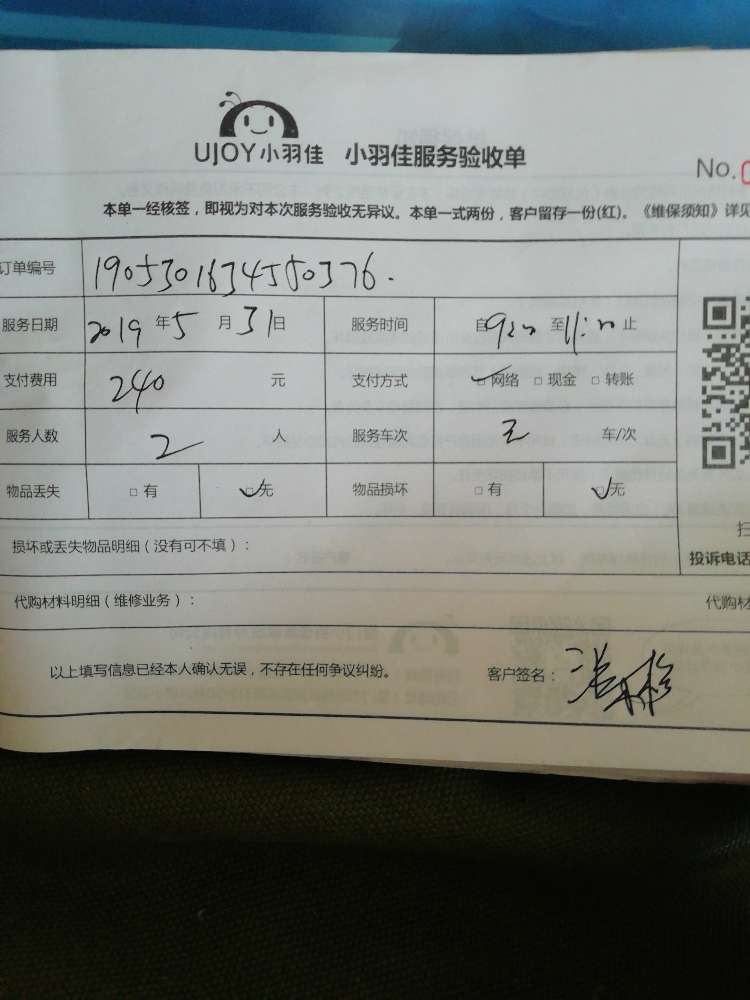 UJOY小羽佳 小羽佳服务验收单
No.0
本单一经核签，即视为对本次服务验收无异议。本单一式两份，客户留存一份(红)。《维保须知》详见
订单编号 190530163455 0376.
服务日期 2019年5月31日 服务时间 自 至 止
支付费用 240 元 支付方式 ☑网络 □现金 □转账
服务人数 2 人 服务车次 车/次
物品丢失 □有 ☑无 物品损坏 □有 ☑无
扫
损坏或丢失物品明细（没有可不填）：
投诉电话
代购材料明细（维修业务）： 代购材
以上填写信息已经本人确认无误，不存在任何争议纠纷。 客户签名：